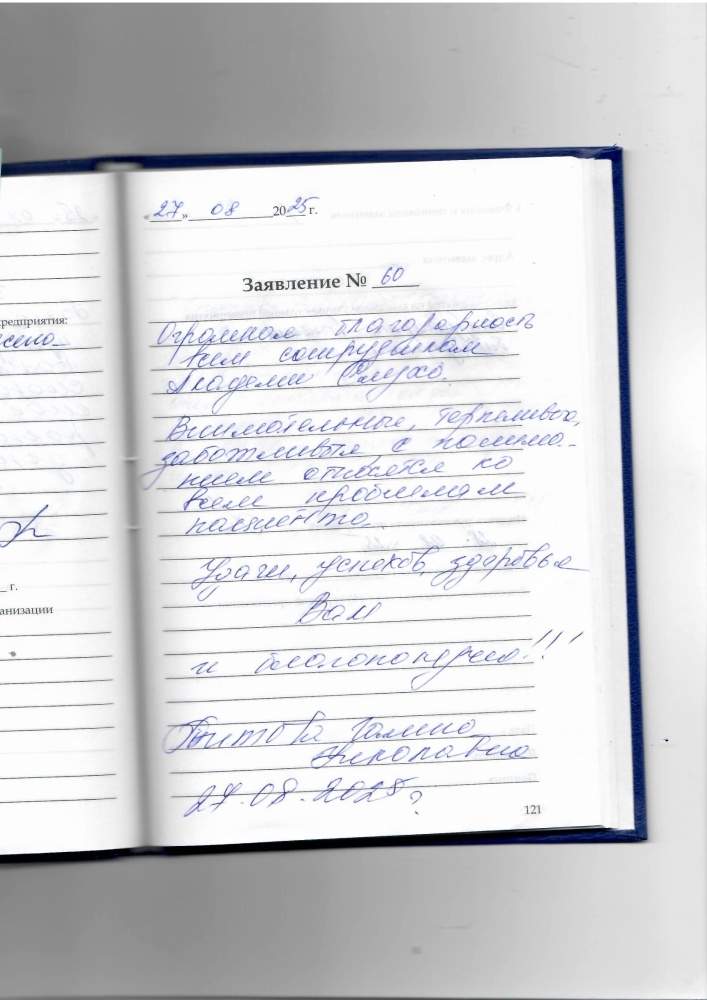 «27» 08 2025 г.
Заявление № 60
Огромная благодарность
всем сотрудникам
Академии Слуха.
Внимательные, терпеливые,
заботливые с понима-
нием относятся ко
всем проблемам
пациента.
Удачи, успехов, здоровья
Вам
и благополучия!!!
Галина
Николаевна
27.08.2025 г
121
редприятия:
г.
анизации